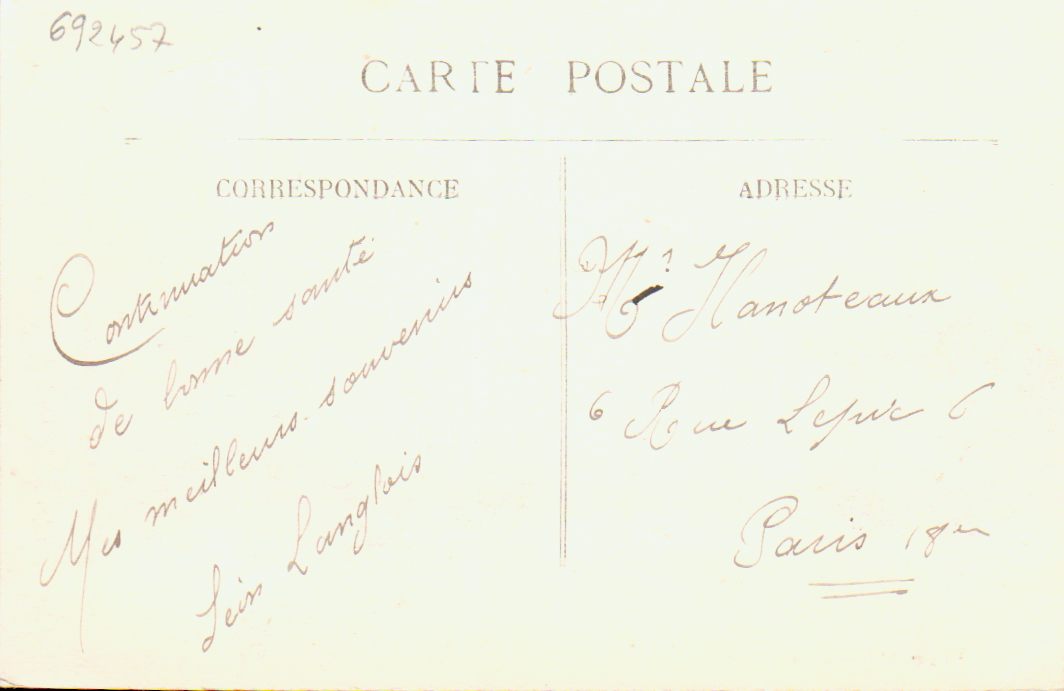 692457
CARTE POSTALE
CORRESPONDANCE
Continuation
de bonne santé
Mes meilleurs souvenirs
Langlois
ADRESSE
Mr Hanoteaux
6 Rue Lepic 6
Paris 18em